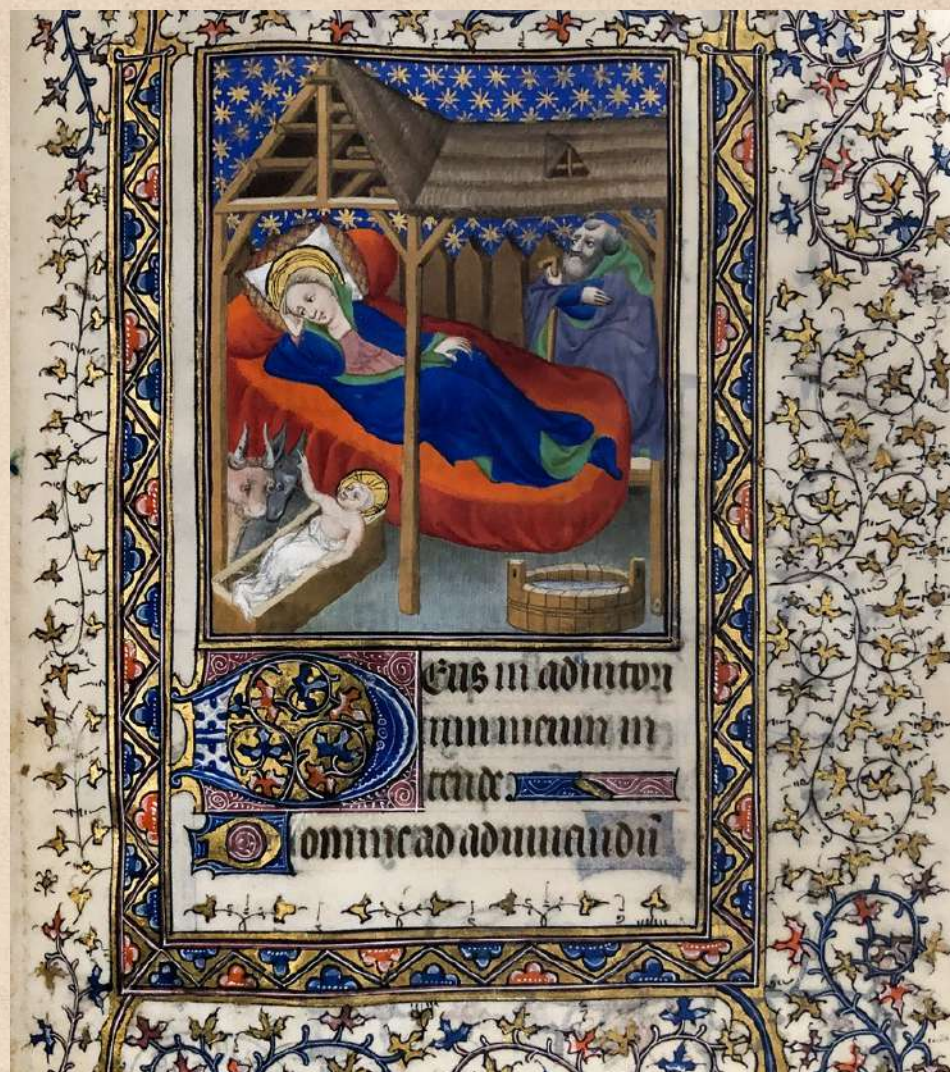 Deus in adiutori
um meum in
tende
Domine ad adiuuandū